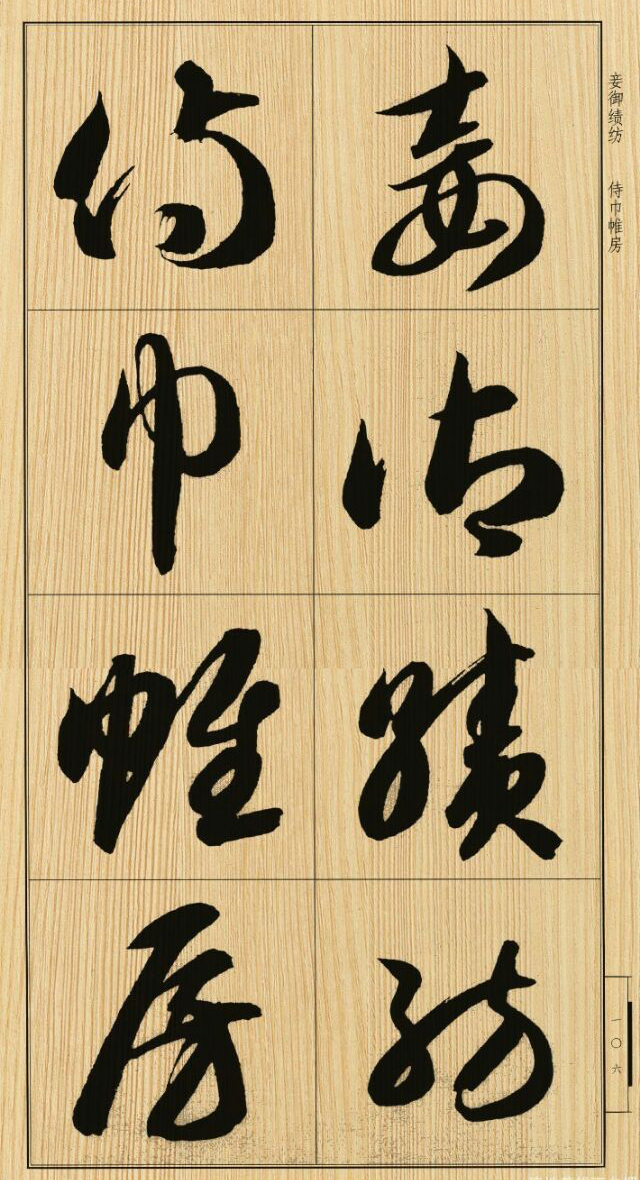 妾御绩纺　侍巾帷房
妾御績紡
侍巾帷房
一〇六